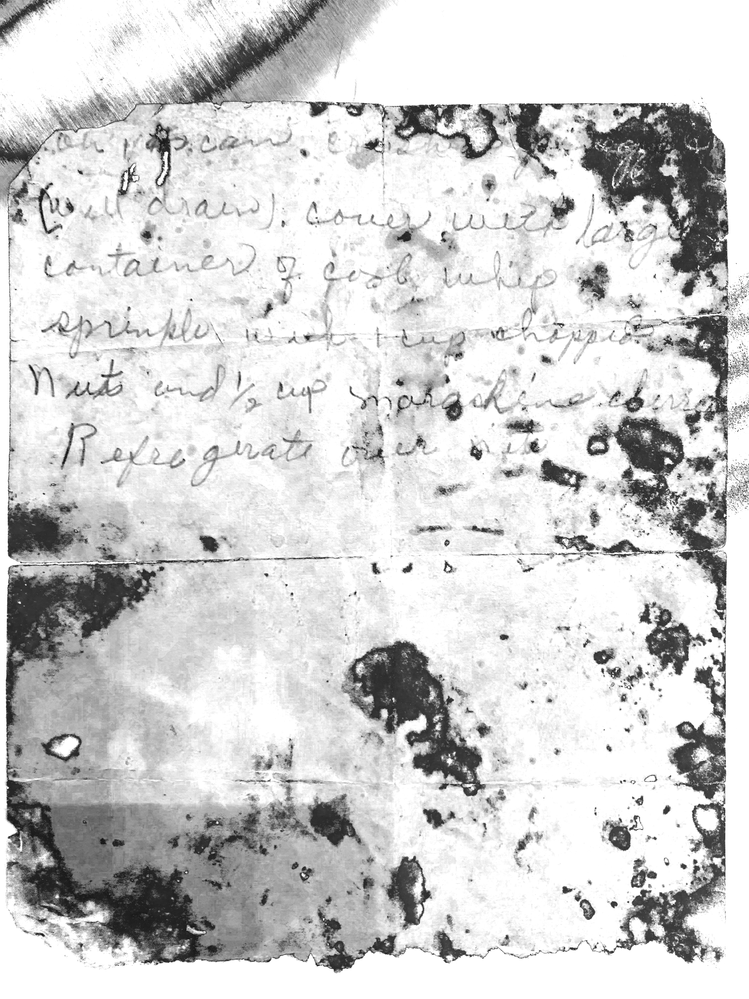 can crush
(well drain). cover with large
container of cool whip
sprinkle with 1 cup chopped
Nuts and 1/2 cup maraskine
Refregerate over nite